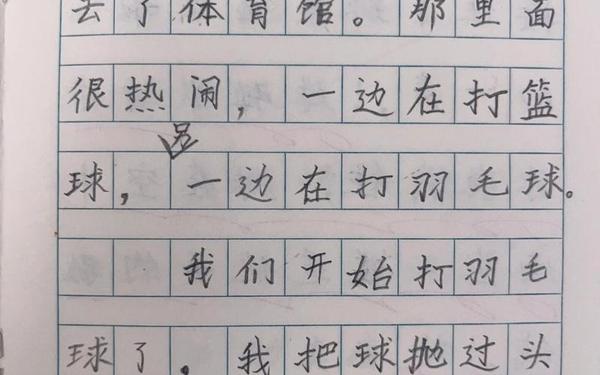 去了体育馆。那里面
很热闹，一边在打篮
球，另一边在打羽毛球。
我们开始打羽毛
球了，我把球抛过头